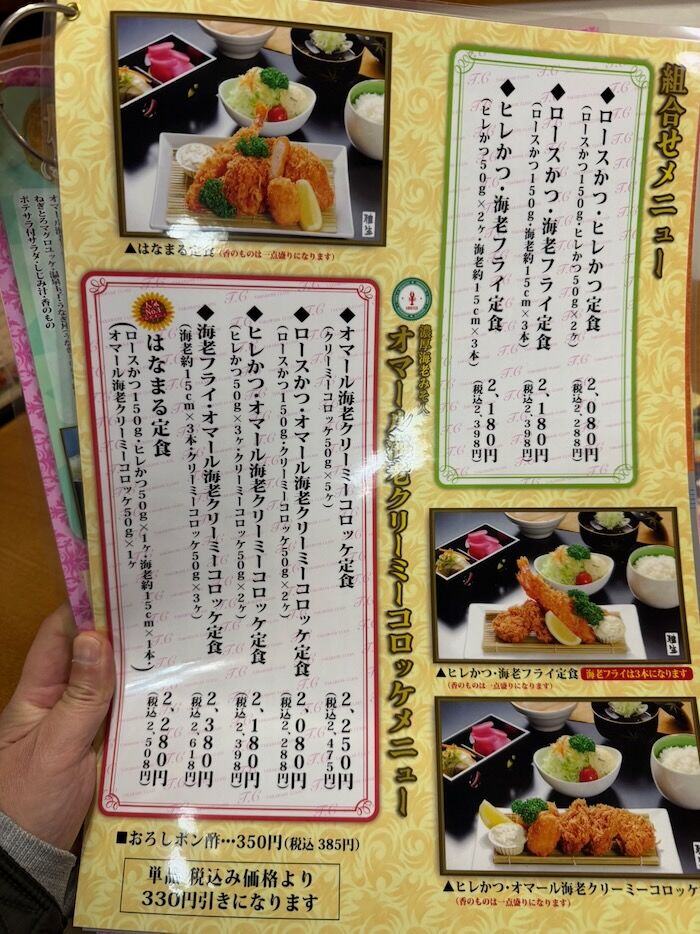 組合せメニュー
◆ロースかつ・ヒレかつ定食 2,080円
(ロースかつ150g・ヒレかつ50g×2ヶ) (税込2,288円)
◆ロースかつ・海老フライ定食 2,180円
(ロースかつ150g・海老約15cm×3本) (税込2,398円)
◆ヒレかつ・海老フライ定食 2,180円
(ヒレかつ50g×2ヶ・海老約15cm×3本) (税込2,398円)
▲はなまる定食(香のものは一点盛りになります)
濃厚海老みそ入
オマール海老クリーミーコロッケメニュー
◆オマール海老クリーミーコロッケ定食 2,250円
(クリーミーコロッケ50g×5ヶ) (税込2,475円)
◆ロースかつ・オマール海老クリーミーコロッケ定食 2,080円
(ロースかつ150g・クリーミーコロッケ50g×2ヶ) (税込2,288円)
◆ヒレかつ・オマール海老クリーミーコロッケ定食 2,180円
(ヒレかつ50g×3ヶ・クリーミーコロッケ50g×2ヶ) (税込2,398円)
◆海老フライ・オマール海老クリーミーコロッケ定食 2,380円
(海老約15cm×3本・クリーミーコロッケ50g×3ヶ) (税込2,618円)
はなまる定食 2,280円
(ロースかつ150g・ヒレかつ50g×1ヶ・海老約15cm×1本・ (税込2,508円)
オマール海老クリーミーコロッケ50g×1ヶ)
▲ヒレかつ・海老フライ定食 海老フライは3本になります
(香のものは一点盛りになります)
▲ヒレかつ・オマール海老クリーミーコロッケ
(香のものは一点盛りになります)
■おろしポン酢…350円(税込 385円)
税込価格より
330円引きになります
ポテサラ付サラダ・しじみ汁・香のもの